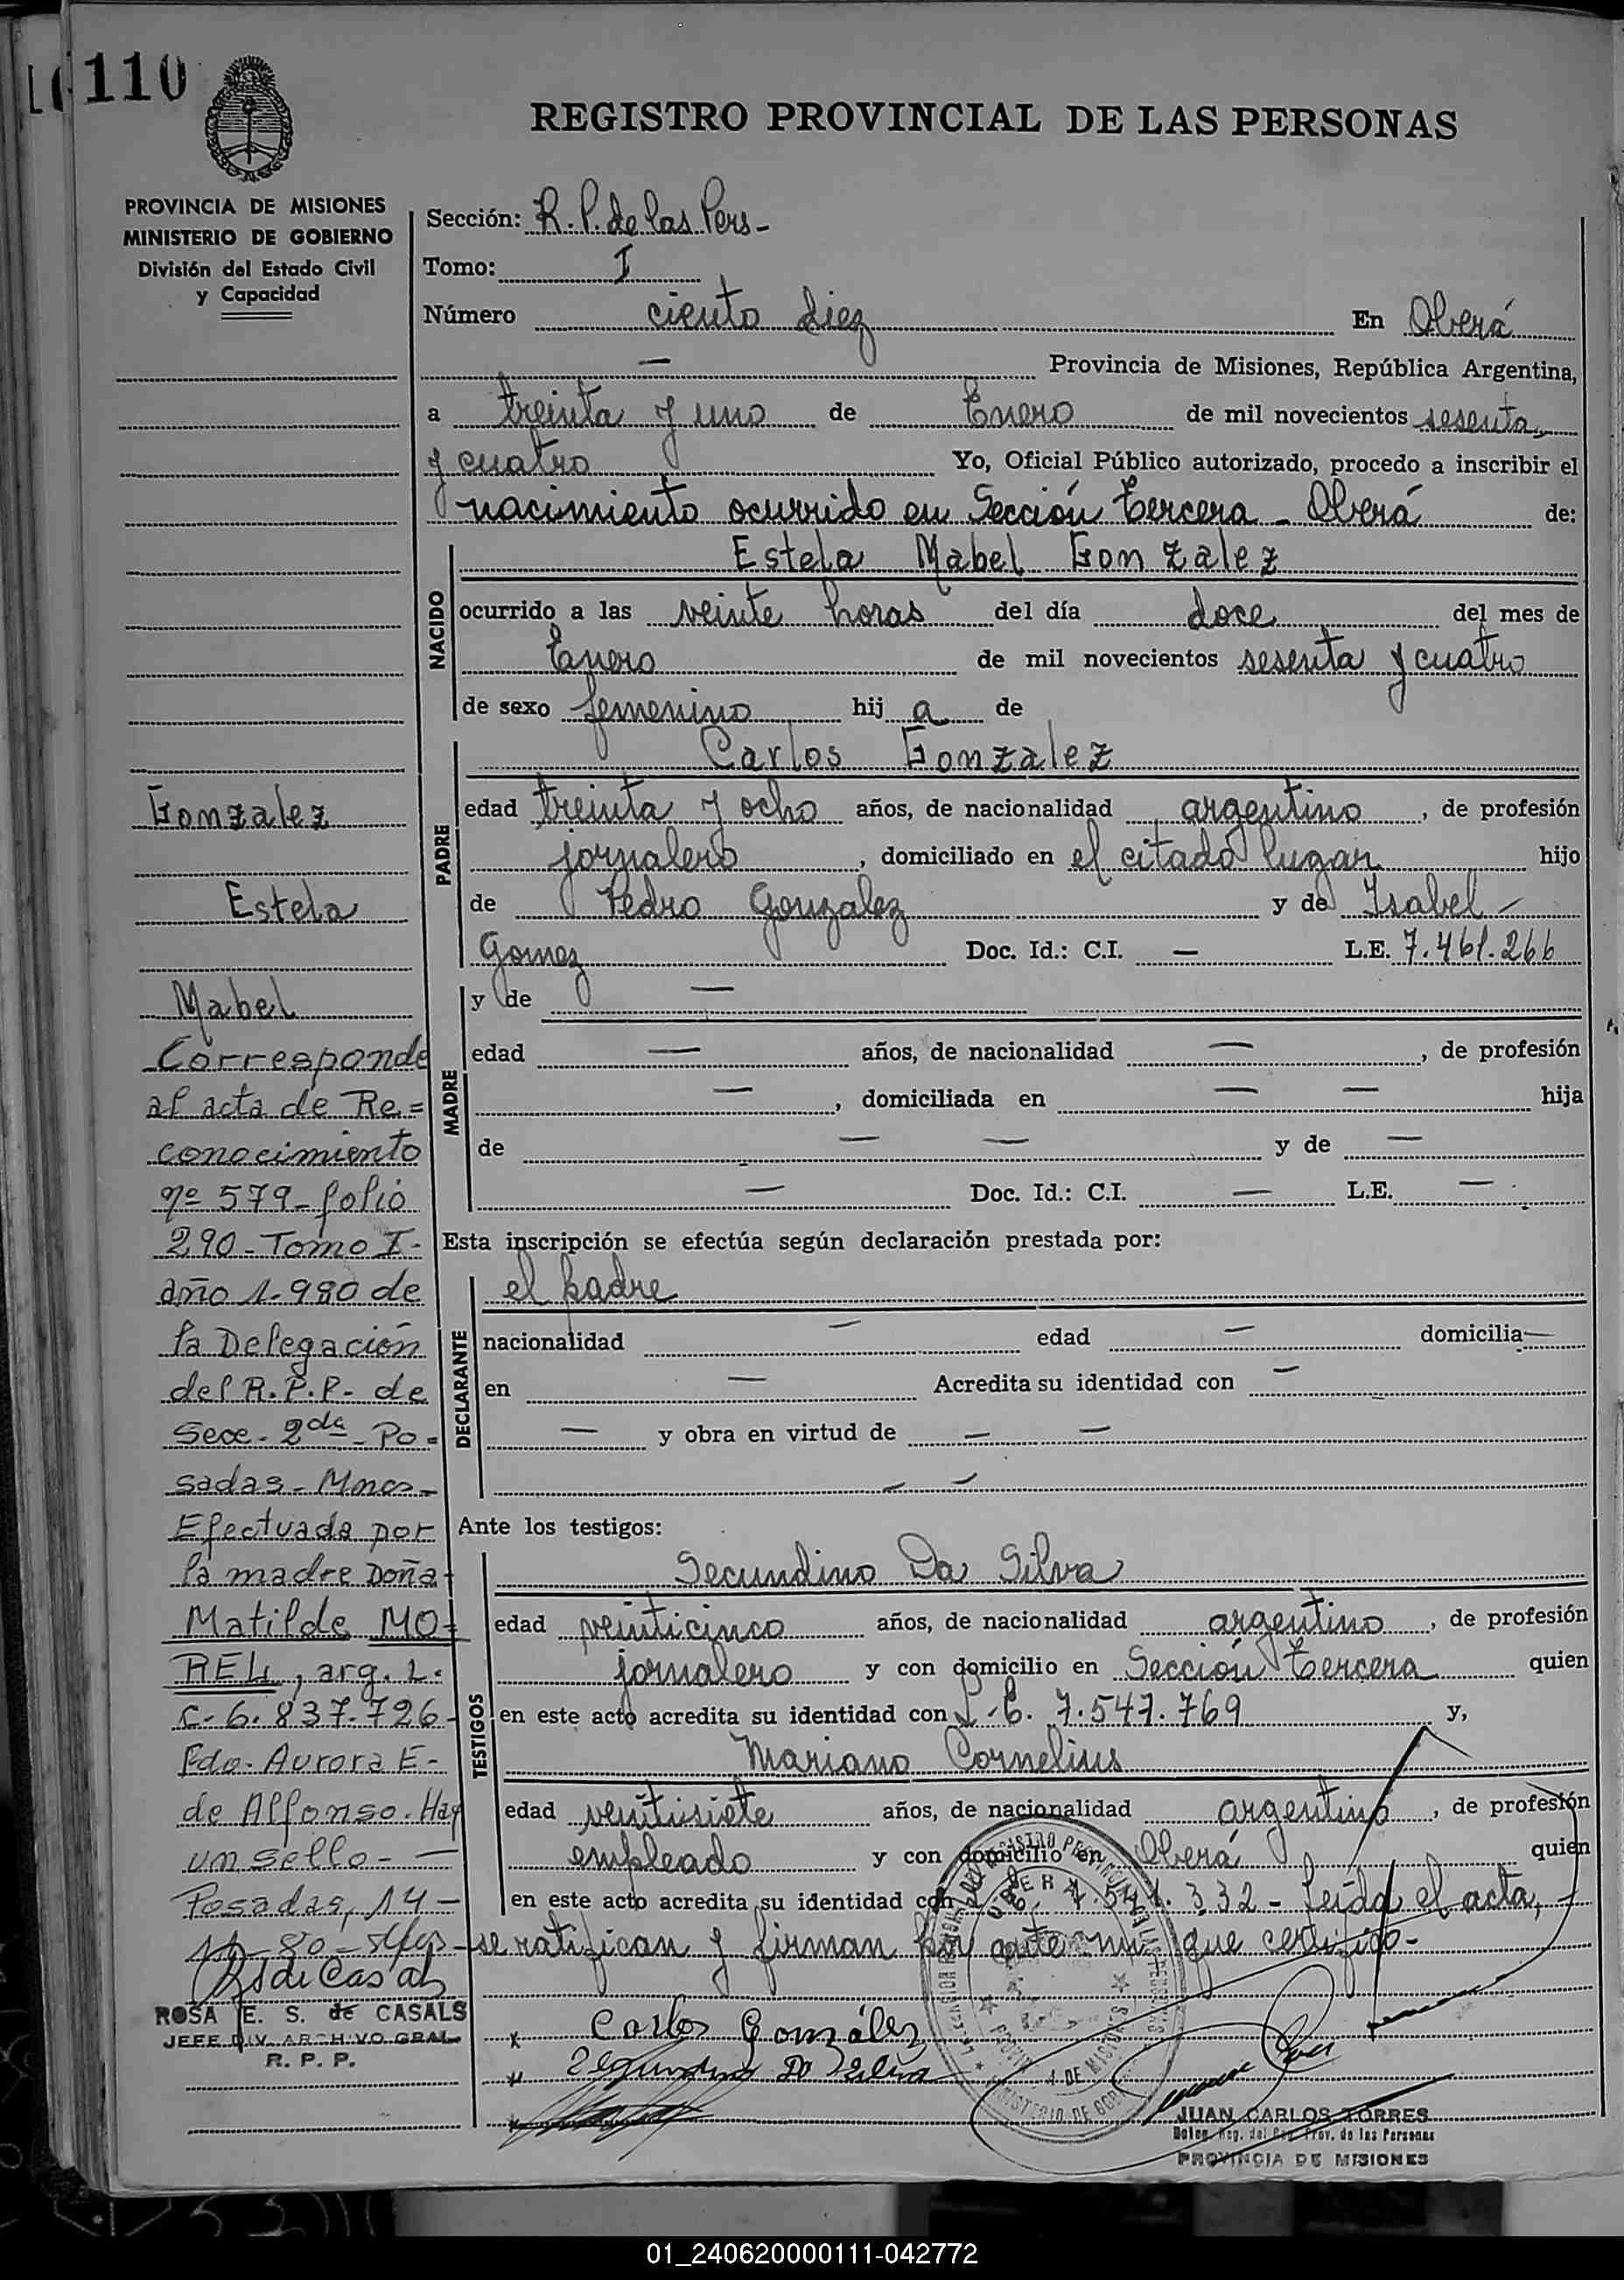 110
REGISTRO PROVINCIAL DE LAS PERSONAS
PROVINCIA DE MISIONES
MINISTERIO DE GOBIERNO
División del Estado Civil
y Capacidad
Sección: R. P. de las Pers-
Tomo: I
Número ciento diez En Oberá
— Provincia de Misiones, República Argentina,
a treinta y uno de Enero de mil novecientos sesenta
y cuatro Yo, Oficial Público autorizado, procedo a inscribir el
nacimiento ocurrido en Sección Tercera - Oberá de:
NACIDO
Estela Mabel Gonzalez
ocurrido a las veinte horas del día doce del mes de
Enero de mil novecientos sesenta y cuatro
de sexo femenino hij a de
PADRE
Carlos Gonzalez
edad treinta y ocho años, de nacionalidad argentino, de profesión
jornalero, domiciliado en el citado lugar hijo
de Pedro Gonzalez y de Isabel -
Gomez Doc. Id.: C.I. — L.E. 7.461.266
MADRE
y de —
edad — años, de nacionalidad —, de profesión
—, domiciliada en — — hija
de — — y de —
— Doc. Id.: C.I. — L.E. —
Esta inscripción se efectúa según declaración prestada por:
DECLARANTE
el padre
nacionalidad — edad — domicilia—
en — Acredita su identidad con —
— y obra en virtud de — —
— —
Ante los testigos:
TESTIGOS
Secundino Da Silva
edad veinticinco años, de nacionalidad argentino, de profesión
jornalero y con domicilio en Sección Tercera quien
en este acto acredita su identidad con L.E. 7.547.769 y,
Mariano Cornelius
edad veintisiete años, de nacionalidad argentino, de profesión
empleado y con domicilio en Oberá quien
en este acto acredita su identidad con 332 - Leída el acta,
se ratifican y firman por ante mi que certifico-
x Carlos González
Da Silva
JUAN CARLOS TORRES
Deleg. Reg. del Reg. Prov. de las Personas
PROVINCIA DE MISIONES
Gonzalez
Estela
Mabel
Corresponde
al acta de Re=
conocimiento
nº 579 - folio
290 - Tomo I -
año 1.980 de
la Delegación
del R. P. P. - de
Secc. 2da - Po=
sadas - Mnes -
Efectuada por
la madre Doña
Matilde MO=
REL, arg. L.
C- 6.837.726 -
Fdo. Aurora E-
de Alfonso. Hay
un sello - —
Posadas, 14 -
80 -
ROSA E. S. de CASALS
JEFE DIV. ARCHIVO GRAL
R. P. P.
01_240620000111-042772